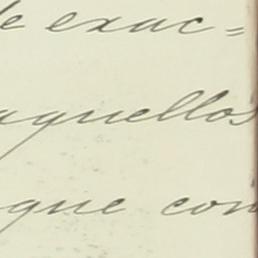 de exac=
aquellos
que con